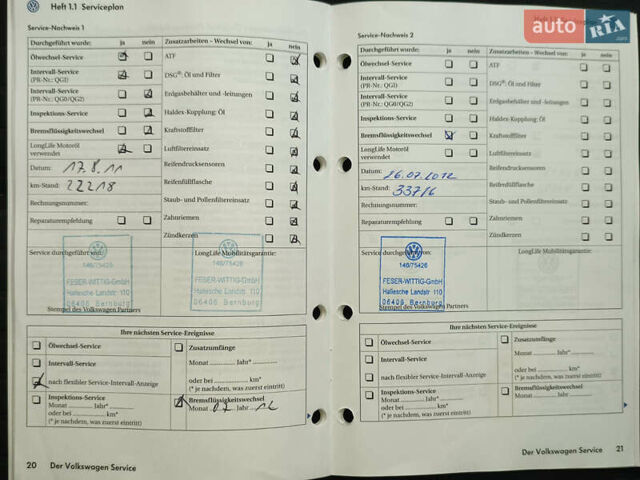 Heft 1.1 Serviceplan
Service-Nachweis 1
Durchgeführt wurde: ja nein
Zusatzarbeiten - Wechsel von: ja nein
Ölwechsel-Service
ATF
Intervall-Service
(PR-Nr.: QG1)
DSG®: Öl und Filter
Intervall-Service
(PR-Nr.: QG0/QG2)
Erdgasbehälter und -leitungen
Inspektions-Service
Haldex-Kupplung: Öl
Bremsflüssigkeitswechsel
Kraftstofffilter
LongLife Motoröl
verwendet
Luftfiltereinsatz
Datum: 17.8.11
Reifendrucksensoren
km-Stand: 22218
Reifenfüllflasche
Rechnungsnummer:
Staub- und Pollenfiltereinsatz
Reparaturempfehlung
Zahnriemen
Zündkerzen
Service durchgeführt von:
LongLife Mobilitätsgarantie:
146/75426
FESER-WITTIG-GmbH
Hallesche Landstr. 110
06406 Bernburg
146/75426
FESER-WITTIG-GmbH
Hallesche Landstr. 110
06406 Bernburg
Stempel des Volkswagen Partners
Ihre nächsten Service-Ereignisse
Ölwechsel-Service
Intervall-Service
nach flexibler Service-Intervall-Anzeige
Zusatzumfänge
Monat Jahr*
oder bei km*
(* je nachdem, was zuerst eintritt)
Inspektions-Service
Monat Jahr*
oder bei km*
(* je nachdem, was zuerst eintritt)
Bremsflüssigkeitswechsel
Monat 07 Jahr 12
20 Der Volkswagen Service
Heft 1.1 Serviceplan
Service-Nachweis 2
Durchgeführt wurde: ja nein
Zusatzarbeiten - Wechsel von: ja nein
Ölwechsel-Service
ATF
Intervall-Service
(PR-Nr.: QG1)
DSG®: Öl und Filter
Intervall-Service
(PR-Nr.: QG0/QG2)
Erdgasbehälter und -leitungen
Inspektions-Service
Haldex-Kupplung: Öl
Bremsflüssigkeitswechsel
Kraftstofffilter
LongLife Motoröl
verwendet
Luftfiltereinsatz
Datum: 26.07.2012
Reifendrucksensoren
km-Stand: 33716
Reifenfüllflasche
Rechnungsnummer:
Staub- und Pollenfiltereinsatz
Reparaturempfehlung
Zahnriemen
Zündkerzen
Service durchgeführt von:
LongLife Mobilitätsgarantie:
146/75426
FESER-WITTIG-GmbH
Hallesche Landstr. 110
06406 Bernburg
Stempel des Volkswagen Partners
Ihre nächsten Service-Ereignisse
Ölwechsel-Service
Intervall-Service
nach flexibler Service-Intervall-Anzeige
Zusatzumfänge
Monat Jahr*
oder bei km*
(* je nachdem, was zuerst eintritt)
Inspektions-Service
Monat Jahr*
oder bei km*
(* je nachdem, was zuerst eintritt)
Bremsflüssigkeitswechsel
Monat Jahr
Der Volkswagen Service 21
auto RIA.com